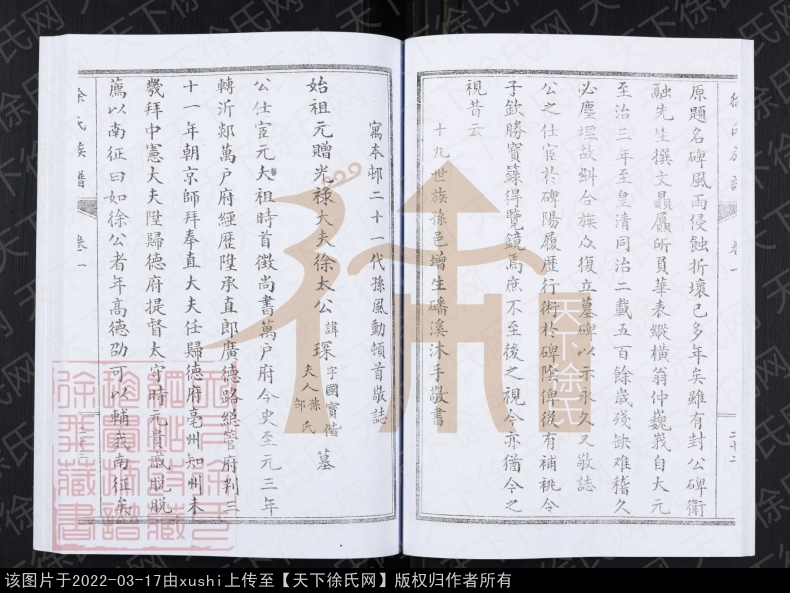 原題名碑風雨侵蝕折壞已多年矣雖有封公碑衛
融先生撰文贔屭所負華表縱橫翁仲巍峩自大元
至治三年至皇清同治二載五百餘歲殘缺难稽久
必塵堙故糾合族众復立墓碑以示永久又敬誌
公之仕宦於碑陽履歷行術於碑隂俾後有補祧令
子欽勝寳籙得覽鏡焉庶不至後之視今亦猶今之
視昔云
十九世族孫邑增生磻溪沐手敬書
徐氏族譜
卷一
寓本邨二十一代孫風動頓首敬誌
始祖元贈光祿大夫徐太公諱琛字國寳偕夫人孫邹氏墓
公仕宦元大祖時首徵尚書萬戶府令吏至元三年
轉沂郯萬戶府經歷陞承直郎廣德路總管府判三
十一年朝京師拜奉直大夫任歸德府亳州知州未
幾拜中憲大夫陞歸德府提督太守時元貴戚脱脱
薦以南征曰如徐公者年高德劭可以輔我南征矣
徐氏族譜
卷一
天下徐氏
天下徐氏网
该图片于2022-03-17由xushi上传至【天下徐氏网】版权归作者所有